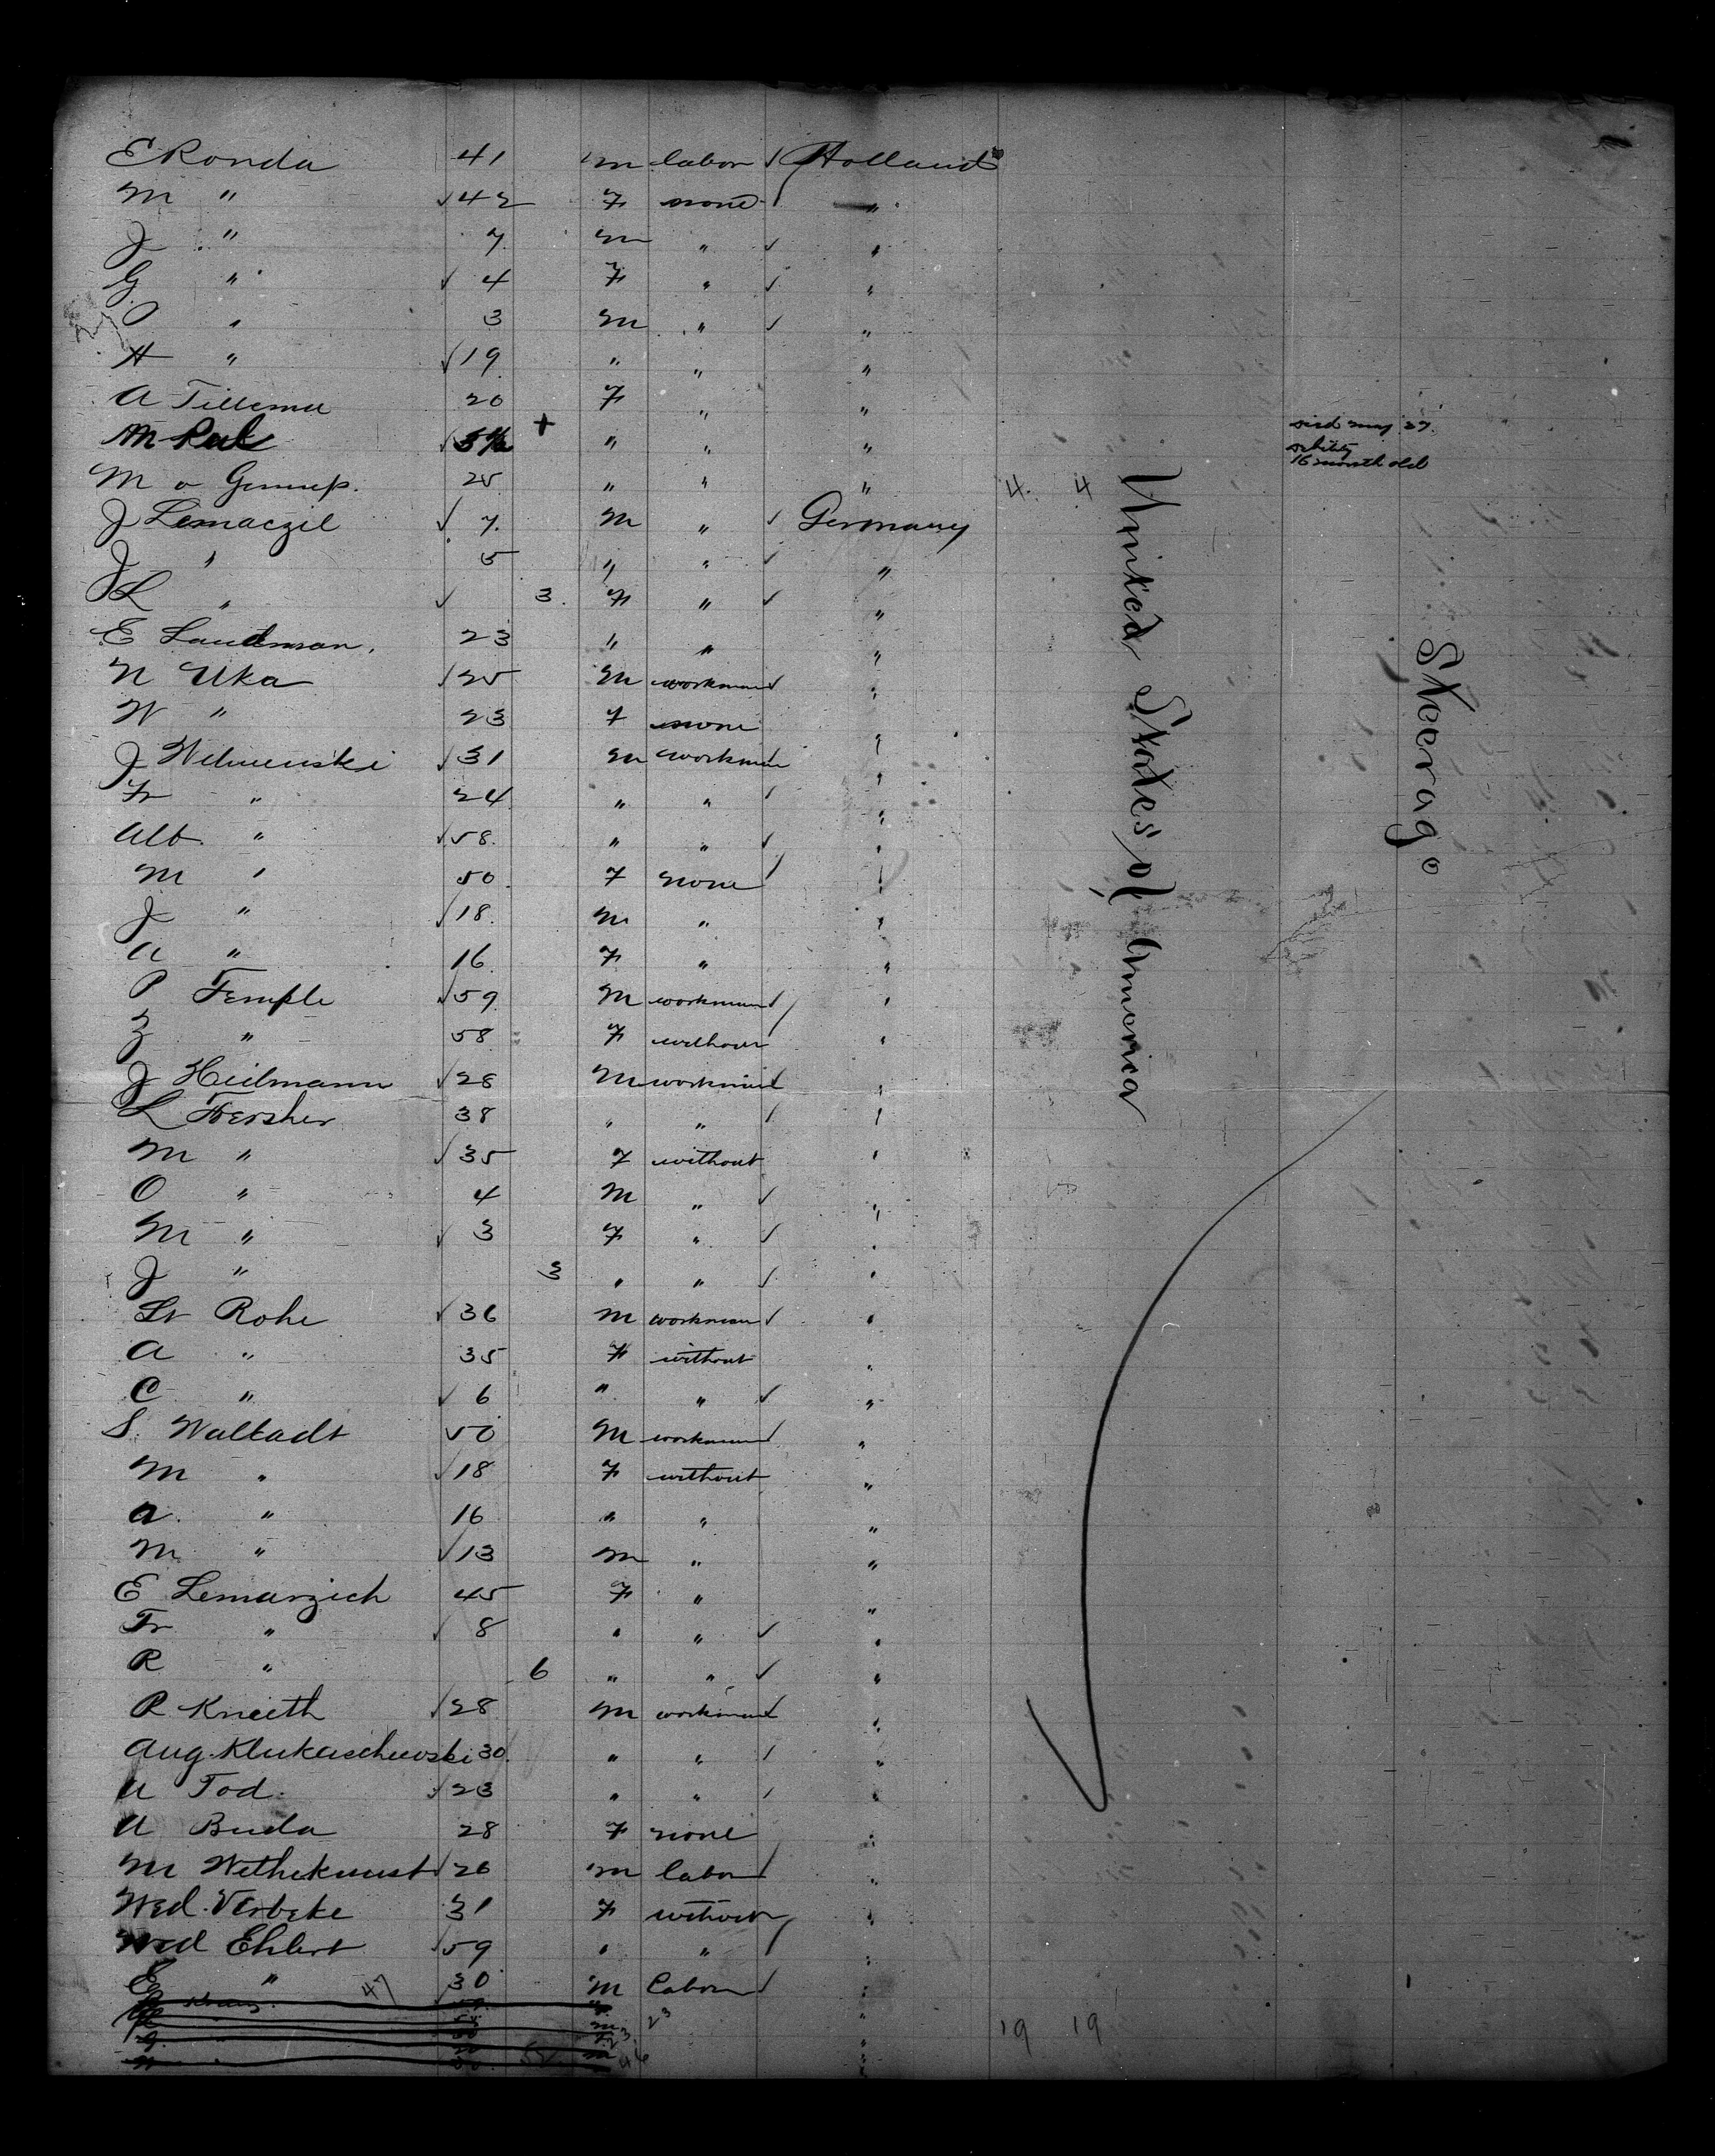 E Ronda 41 m labor ✓ Holland
M " ✓42 F none "
J " 7 m " ✓ "
G " ✓ 4 F " ✓ "
" 3 m " ✓ "
H " ✓19 " " "
A Tillema 20 F " "
M + " " " died may 27.
debility
16 month old
M v Gennep. 25 " " " 4. 4
J Lemaczil ✓ 7. m " ✓ Germany
J " 5 " " ✓ "
L " ✓ 3. F " ✓ "
E Landman. 23 " " "
N Uka ✓25 m workman ✓ "
W " 23 F none "
J ✓31 m workman "
Fr " 24 " " ✓ "
Alb. " ✓58. " " ✓ "
M " 50. F none "
J " ✓18. m " "
A " 16. F " "
P Temple ✓59. m workman ✓ "
Z " 58 F without "
J Heilmann ✓28 m workman "
L 38 " " ✓ "
M " ✓35 F without "
O " 4 m " ✓ "
M " ✓ 3 F " ✓ "
J " 3 " " ✓ "
Rohe ✓36 m workman ✓ "
A " 35 F without "
C " ✓ 6 " " ✓ "
S. Waltadt 50 m workman "
M " ✓18 F without "
A. " 16 " " "
M " ✓13 m " "
E Lemarzich 45 F " "
Fr " ✓ 8 " " ✓ "
R " 6 " " ✓ "
R Kneith ✓28 m workman "
Aug. Klukaschewski 30. " " ✓ "
A Tod. ✓23 " " ✓ "
A Buda 28 F none "
M Wethekunst ✓26 m labor "
Wed. Verbeke 31 F without "
Wed Ehlert ✓59 " " "
E " ✓30 m labor ✓ "
47
19 19
United States of America
Steerage